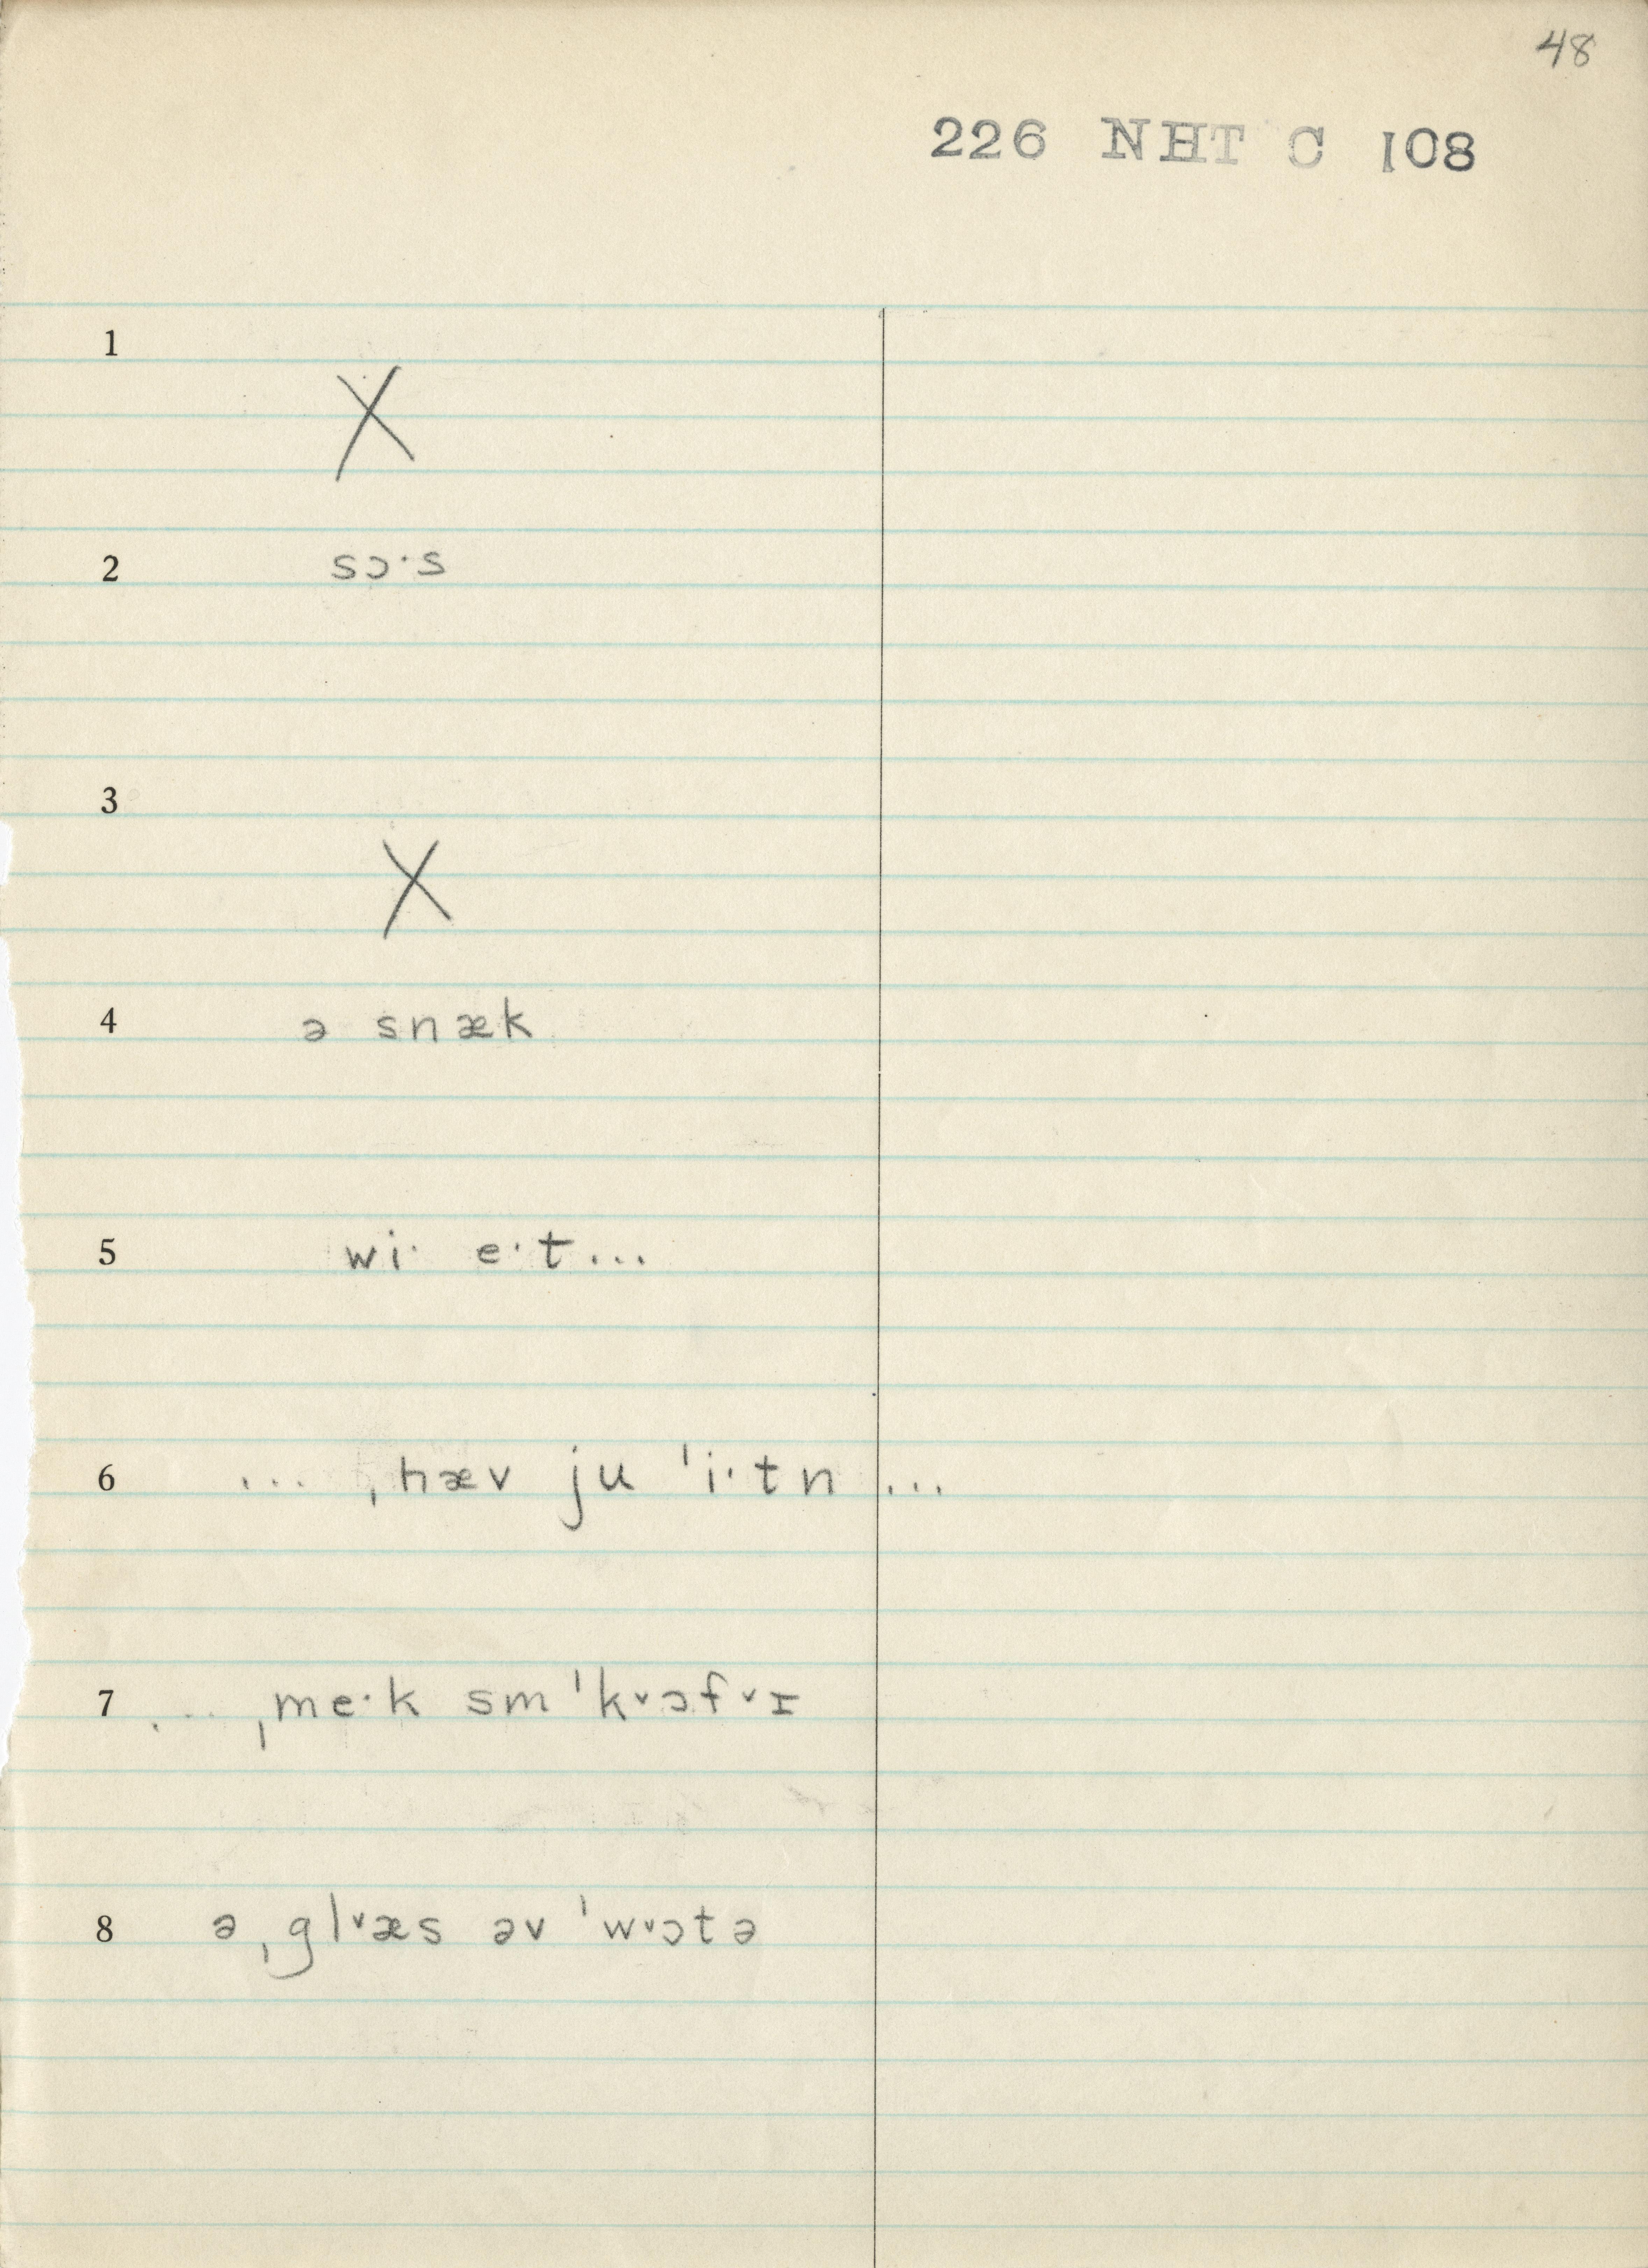 48
226 NHT C 108
1
X
2 sɔ·s
3
X
4 ə snæk
5 wi· e·t...
6 ... ˌhæv ju ˈi·tn ...
7 ... ˌme·k sm ˈk˅ɔf˅ɪ
8 ə ˌgl˅æs əv ˈw˅ɔtə